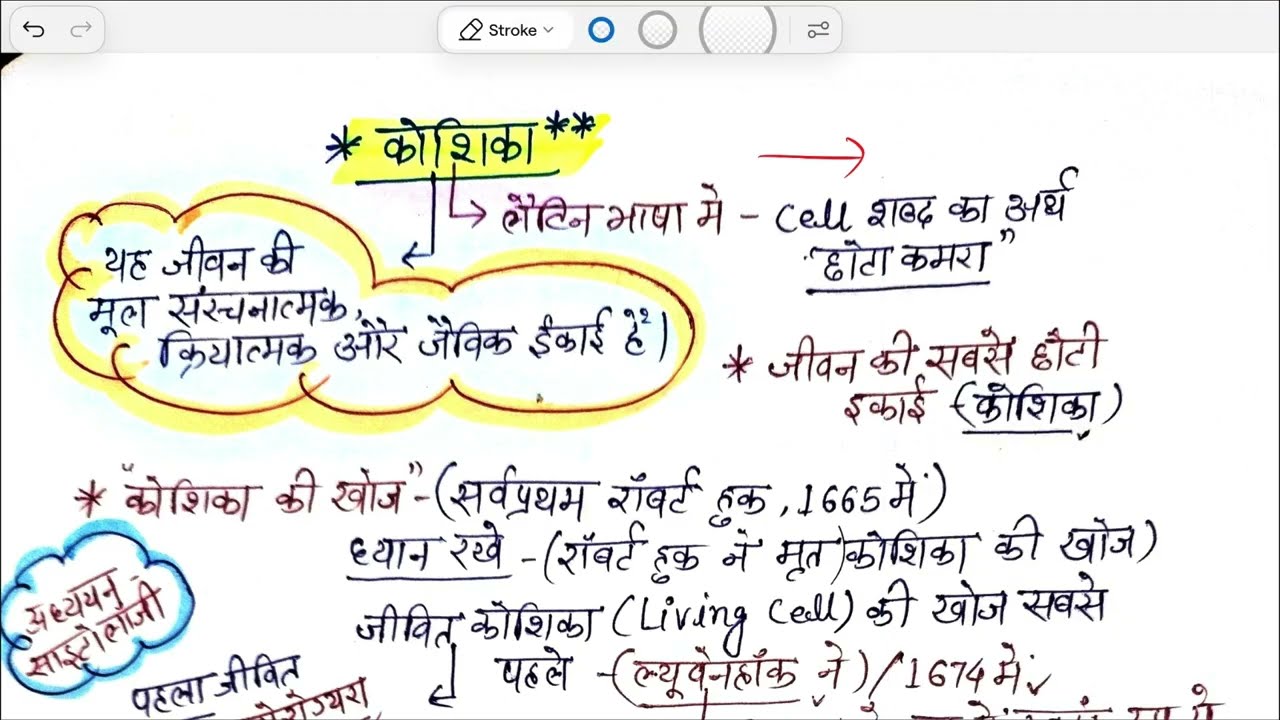 Stroke
* कोशिका **
→ लैटिन भाषा में - Cell शब्द का अर्थ
"छोटा कमरा"
यह जीवन की
मूल संरचनात्मक,
क्रियात्मक और जैविक ईकाई है।
* जीवन की सबसे छोटी
इकाई (कोशिका)
* "कोशिका की खोज" - (सर्वप्रथम रॉबर्ट हुक, 1665 में)
ध्यान रखे - (रॉबर्ट हुक ने मृत) कोशिका की खोज)
जीवित कोशिका (Living Cell) की खोज सबसे
पहले - (ल्यूवेनहॉक ने) / 1674 में
अध्ययन
साइटोलॉजी
पहला जीवित